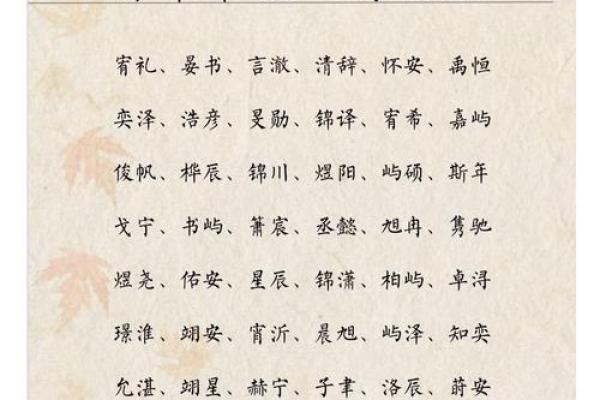 宥礼、晏书、言澈、清辞、怀安、禹恒
奕泽、浩彦、旻勋、锦译、宥希、嘉屿
俊帆、桦辰、锦川、煜阳、屿硕、斯年
戈宁、书屿、箫宸、丞懿、旭冉、隽驰
煜尧、佑安、星辰、锦潇、柏屿、卓浔
璟淮、翊安、宵沂、晨旭、屿泽、知奕
允湛、翊星、赫宁、子聿、洛辰、蔚安